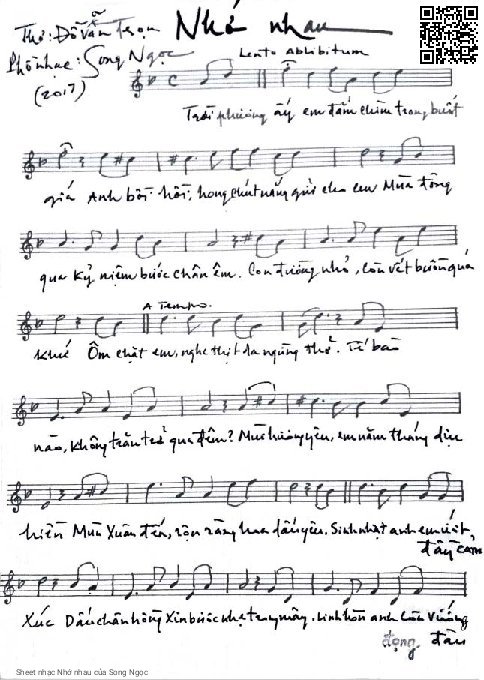 Thơ: Đỗ Văn Trọn
Nhớ nhau
Phổ nhạc: Song Ngọc
(2017)
Lento abhibitum
Trời phương ấy em đắm chìm trong buốt
giá Anh bồi hồi, hong chút nắng gửi cho em Mùa đông
qua Kỷ niệm bước chân êm. Con đường nhỏ, còn vết buồn quá
A Tempo.
khứ Ôm chặt em, nghe thịt da ngừng thở. Tế bào
nào, không trăn trở qua đêm? Mùi hương yêu, em năm tháng dịu
hiền Mùa Xuân đến, rộn ràng hoa dấu yêu. Sinh nhật anh em viết,
đầy cảm
Xúc Dấu chân hồng Xin bước nhẹ trong mây. Linh hồn anh Còn Vướng
đọng đâu
Sheet nhạc Nhớ nhau của Song Ngọc